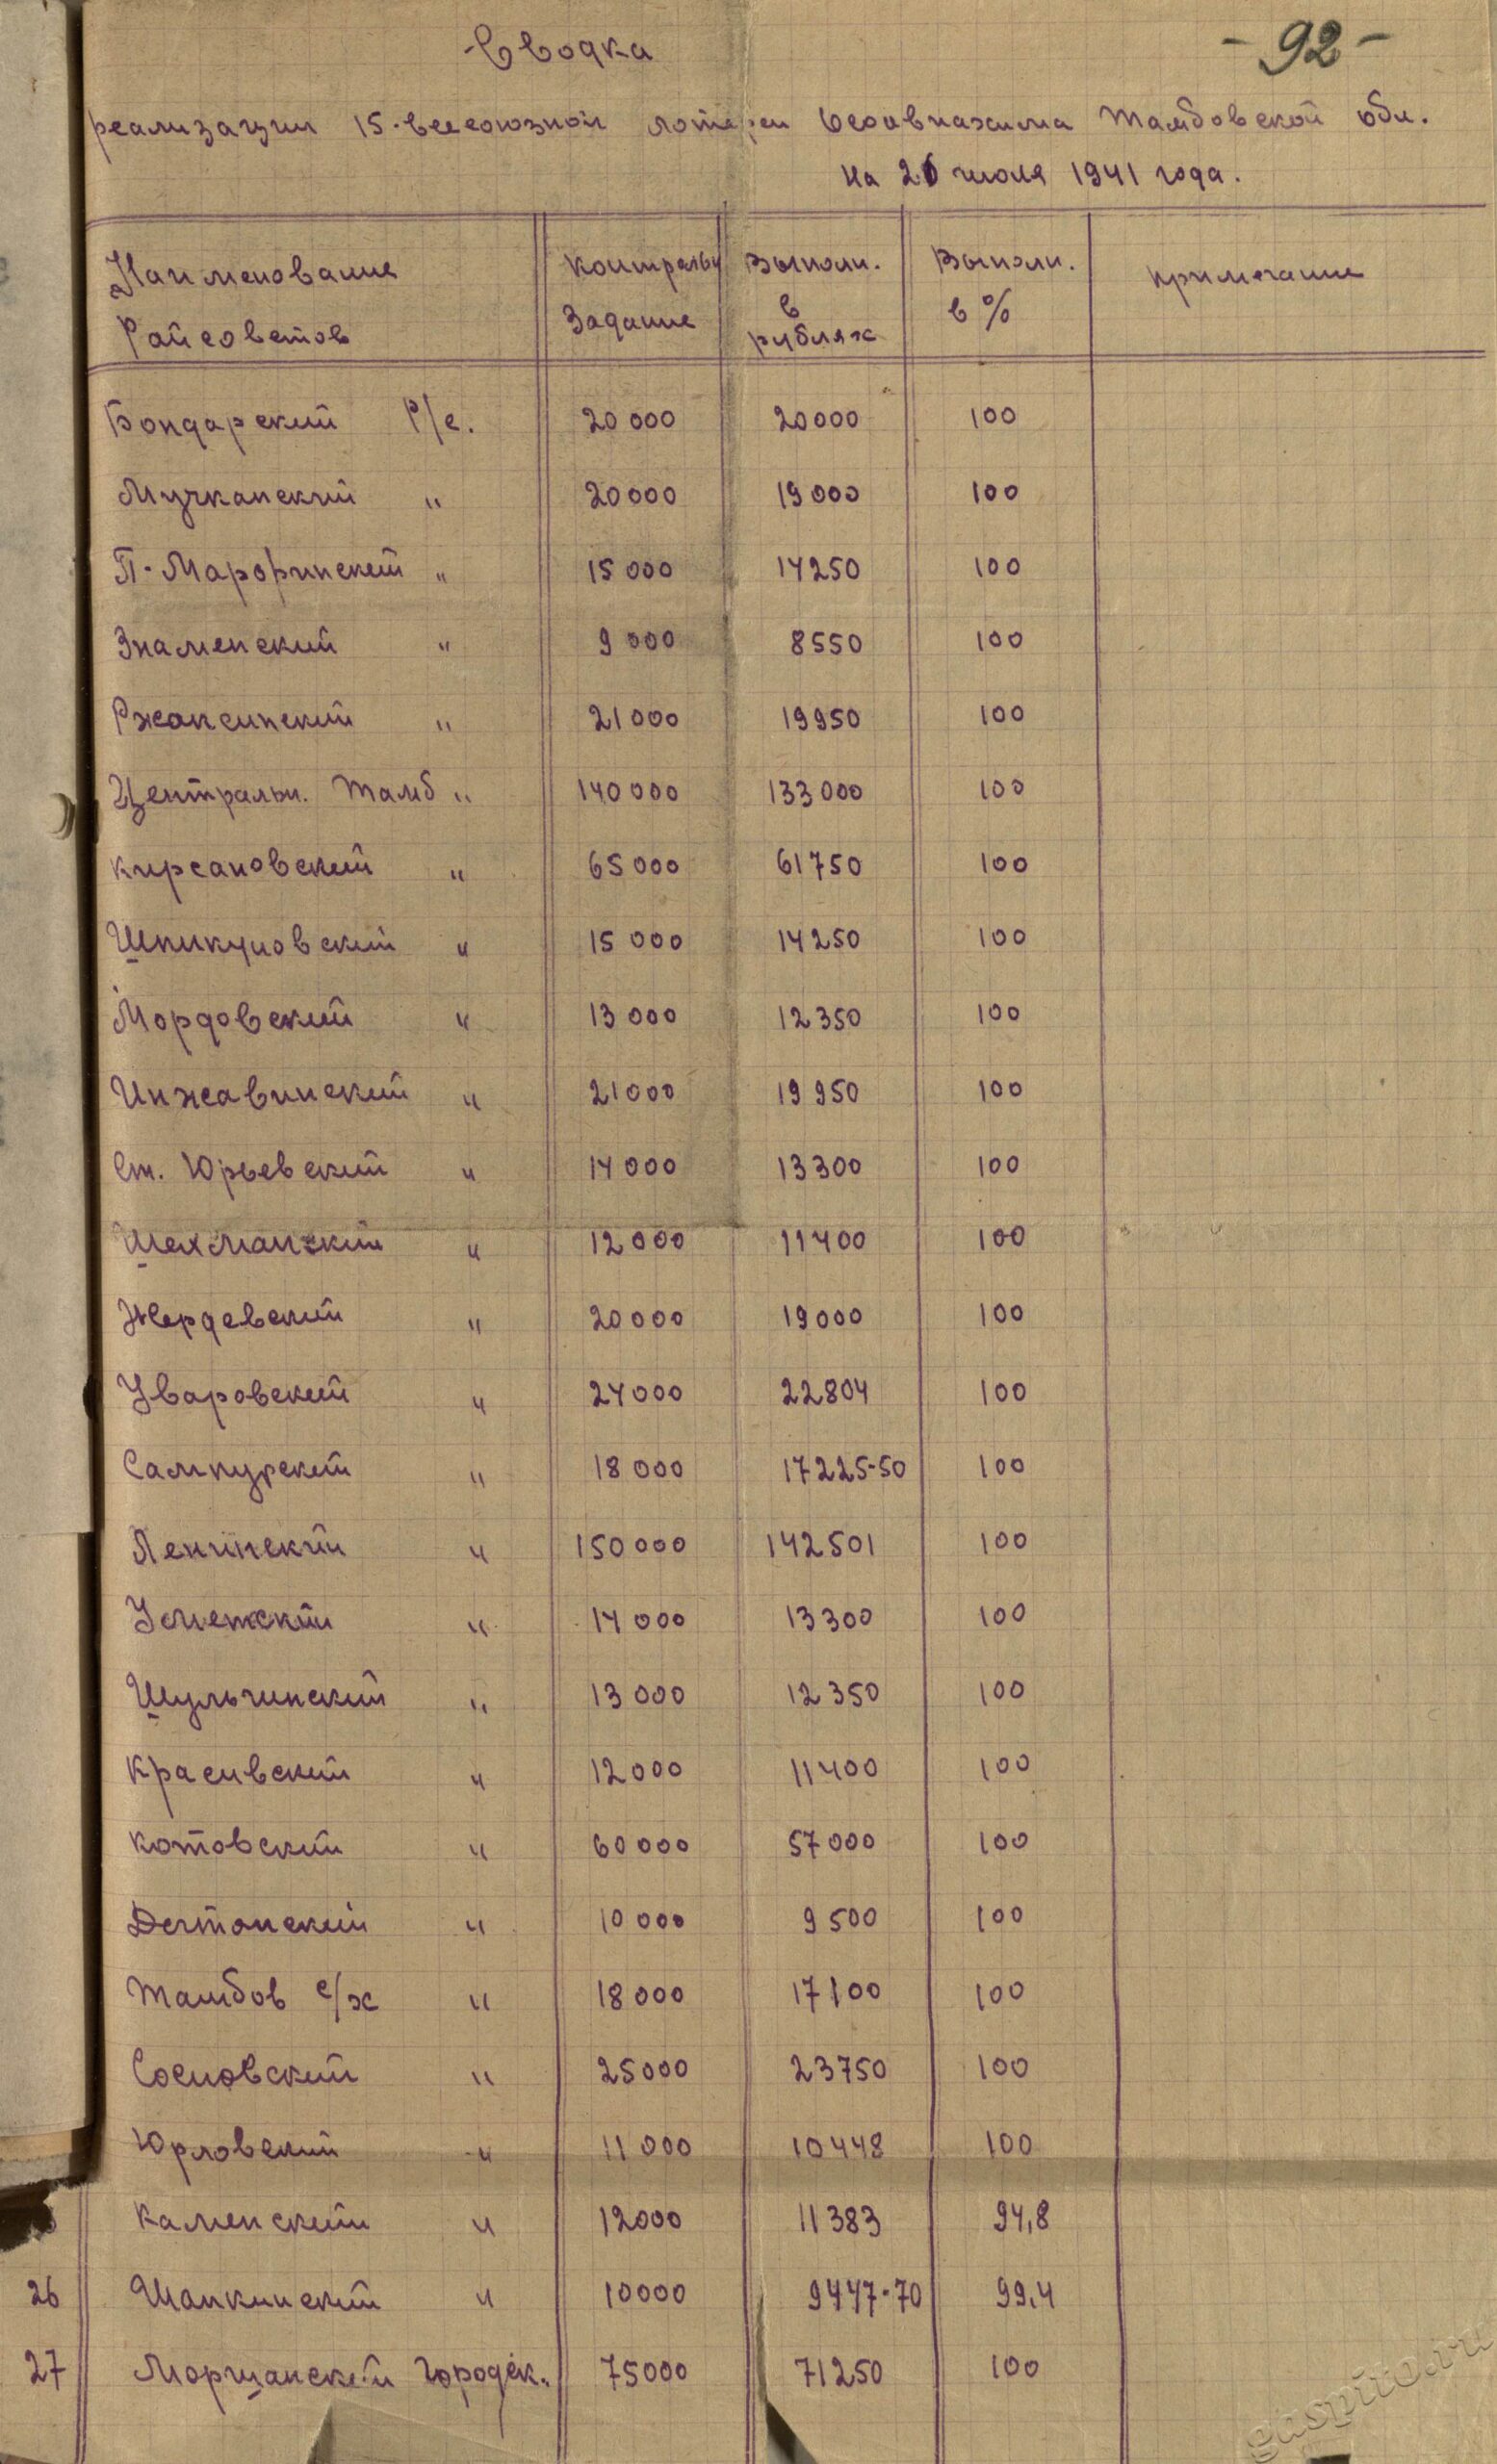 Сводка
- 92 -
реализации 15-всесоюзной лотереи Осоавиахима Тамбовской обл.
на 21 июля 1941 года.
Наименование Райсоветов | Контрольн Задание | Выполн. в рублях | Выполн. в % | Примечание
Бондарский Р/с. 20000 20000 100
Мучкапский " 20000 19000 100
П-Марфинский " 15000 14250 100
Знаменский " 9000 8550 100
Ржаксинский " 21000 19950 100
Центральн. Тамб " 140000 133000 100
Кирсановский " 65000 61750 100
Шпикуловский " 15000 14250 100
Мордовский " 13000 12350 100
Инжавинский " 21000 19950 100
Ст. Юрьевский " 14000 13300 100
Шехманский " 12000 11400 100
Жердевский " 20000 19000 100
Уваровский " 24000 22804 100
Сампурский " 18000 17225-50 100
Ленинский " 150000 142501 100
Уметский " 14000 13300 100
Шульгинский " 13000 12350 100
Красивский " 12000 11400 100
Котовский " 60000 57000 100
Дегтянский " 10000 9500 100
Тамбов с/х " 18000 17100 100
Сосновский " 25000 23750 100
Юрловский " 11000 10448 100
Каменский " 12000 11383 94,8
26 Шапкинский " 10000 9447-70 99,4
27 Моршанский городск. 75000 71250 100
gaspito.ru